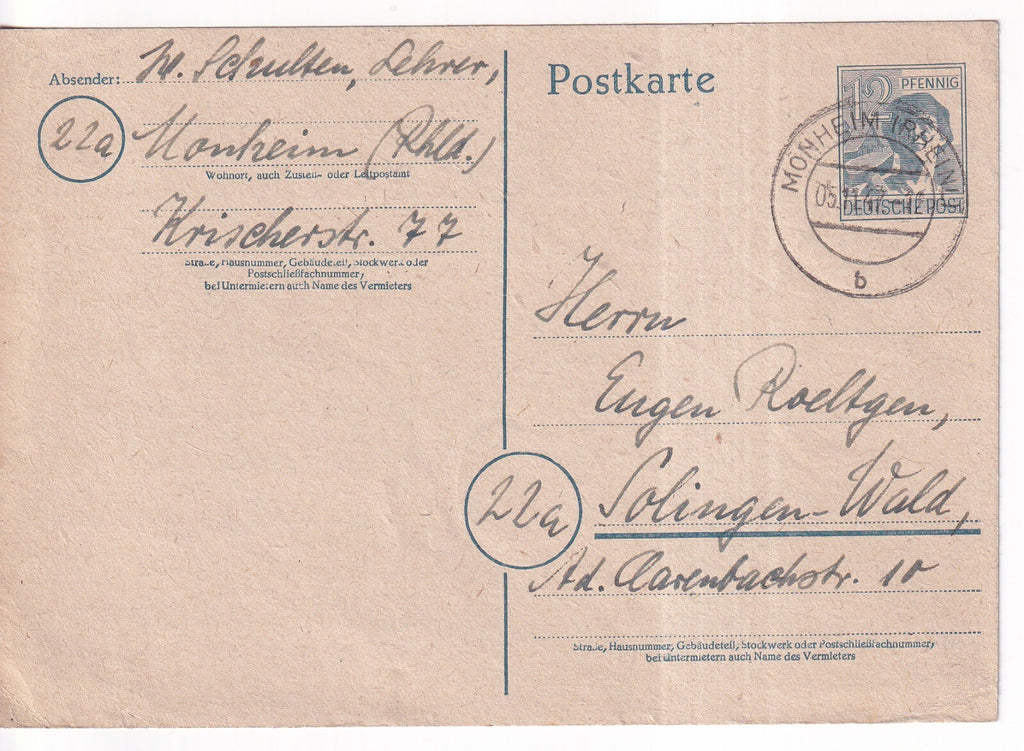 Absender: W. Schulten, Lehrer,
22a
Monheim (Rhld.)
Wohnort, auch Zustell- oder Leitpostamt
Krischerstr. 77
Straße, Hausnummer, Gebäudeteil, Stockwerk oder
Postschließfachnummer,
bei Untermietern auch Name des Vermieters
Postkarte
12 PFENNIG
DEUTSCHE POST
MONHEIM (RHEINL
05.11.
b
Herrn
Eugen Roeltgen,
22a
Solingen-Wald,
Ad. Clarenbachstr. 10
Straße, Hausnummer, Gebäudeteil, Stockwerk oder Postschließfachnummer,
bei Untermietern auch Name des Vermieters